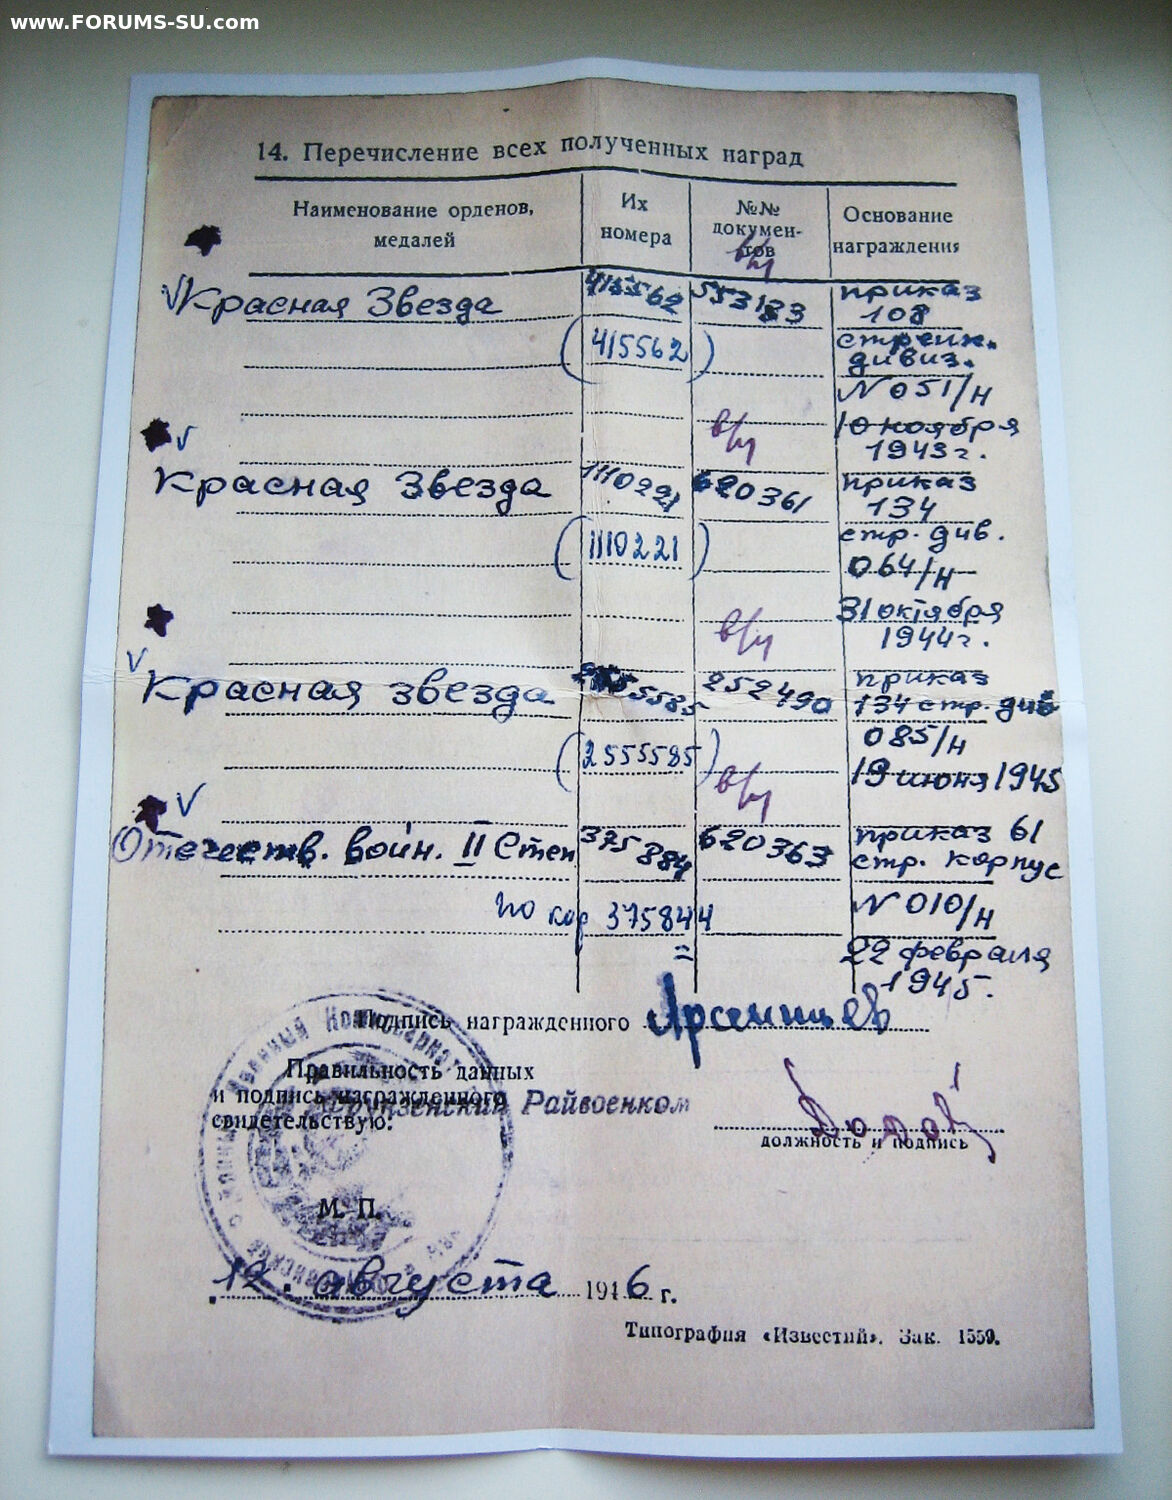 www.FORUMS-SU.com
14. Перечисление всех полученных наград
Наименование орденов, медалей
Их номера
№№ докумен-тов
Основание награждения
в/ч
Красная Звезда 415562 553183 приказ 108
(415562) стрелк. дивиз.
N 051/н
в/ч 10 ноября 1943 г.
Красная Звезда 1110221 620361 приказ 134
(1110221) стр. див.
064/н
в/ч 31 октября 1944 г.
Красная звезда 5585 252490 приказ 134 стр. див
(2555585) 085/н
в/ч 19 июня 1945
Отечеств. войн. II Степ 375884 620363 приказ 61 стр. корпус
375844 N 010/н
22 февраля 1945.
Подпись награжденного
Правильность данных
и подпись награжденного
свидетельствую:
Фрунзенский Райвоенком
должность и подпись
М. П.
12. августа 1946 г.
Типография «Известий». Зак. 1559.